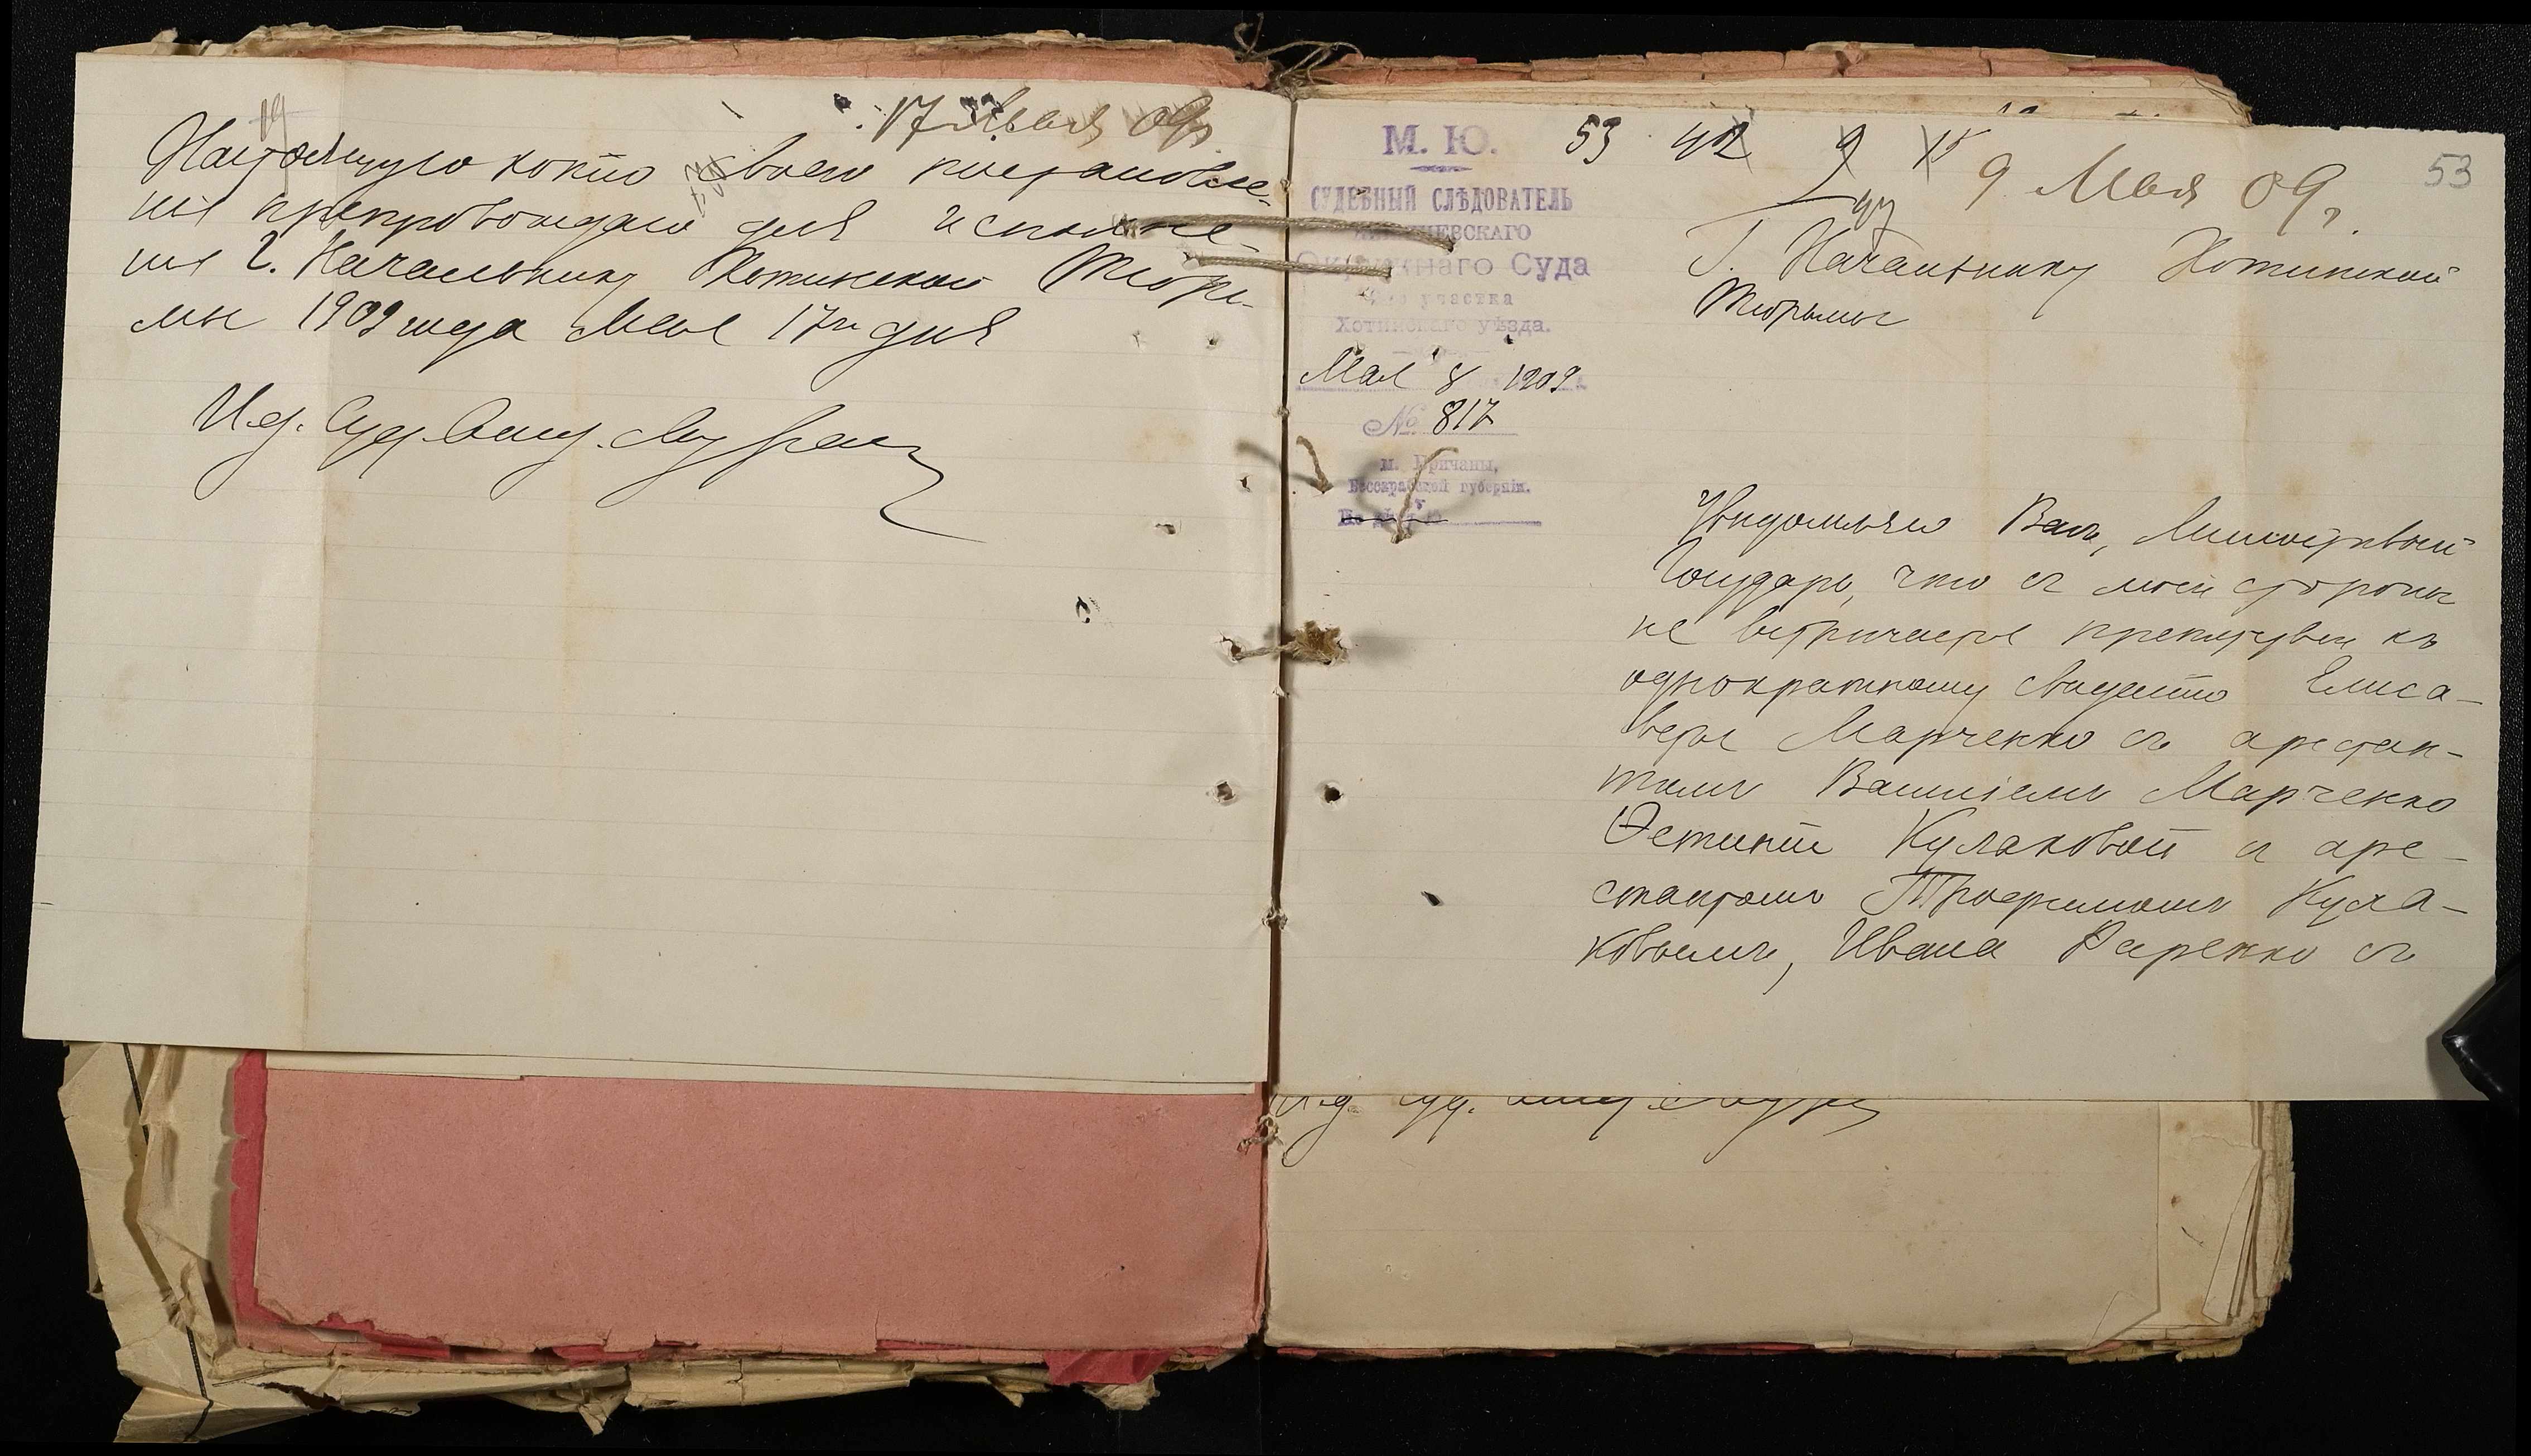 17 Мая 09 г.
Настоящую копію своего постановле-
нія препровождаю для исполне-
нія Г. Начальнику Хотинской Тюрь-
мы 1909 года Мая 17го дня
И.д. Суд. Слѣд.
М. Ю.
СУДЕБНЫЙ СЛѢДОВАТЕЛЬ
КИШИНЕВСКАГО
Окружнаго Суда
участка
Хотинскаго уѣзда.
Мая 8 1909
№ 817
м. Бричаны,
Бессарабской губерніи.
53 42 9 15
53
9 Мая 09 г.
Г. Начальнику Хотинской
Тюрьмы
Увѣдомляю Васъ, Милостивый
Государь, что съ моей стороны
не встрѣчается препятствій къ
однократному свиданію Елиса-
веты Марченко съ арестан-
томъ Василіемъ Марченко
Фетиніи Кулаковой съ аре-
стантомъ Трофимомъ Кула-
ковымъ, Ивана Раренко съ
И.д. Суд. Слѣд.